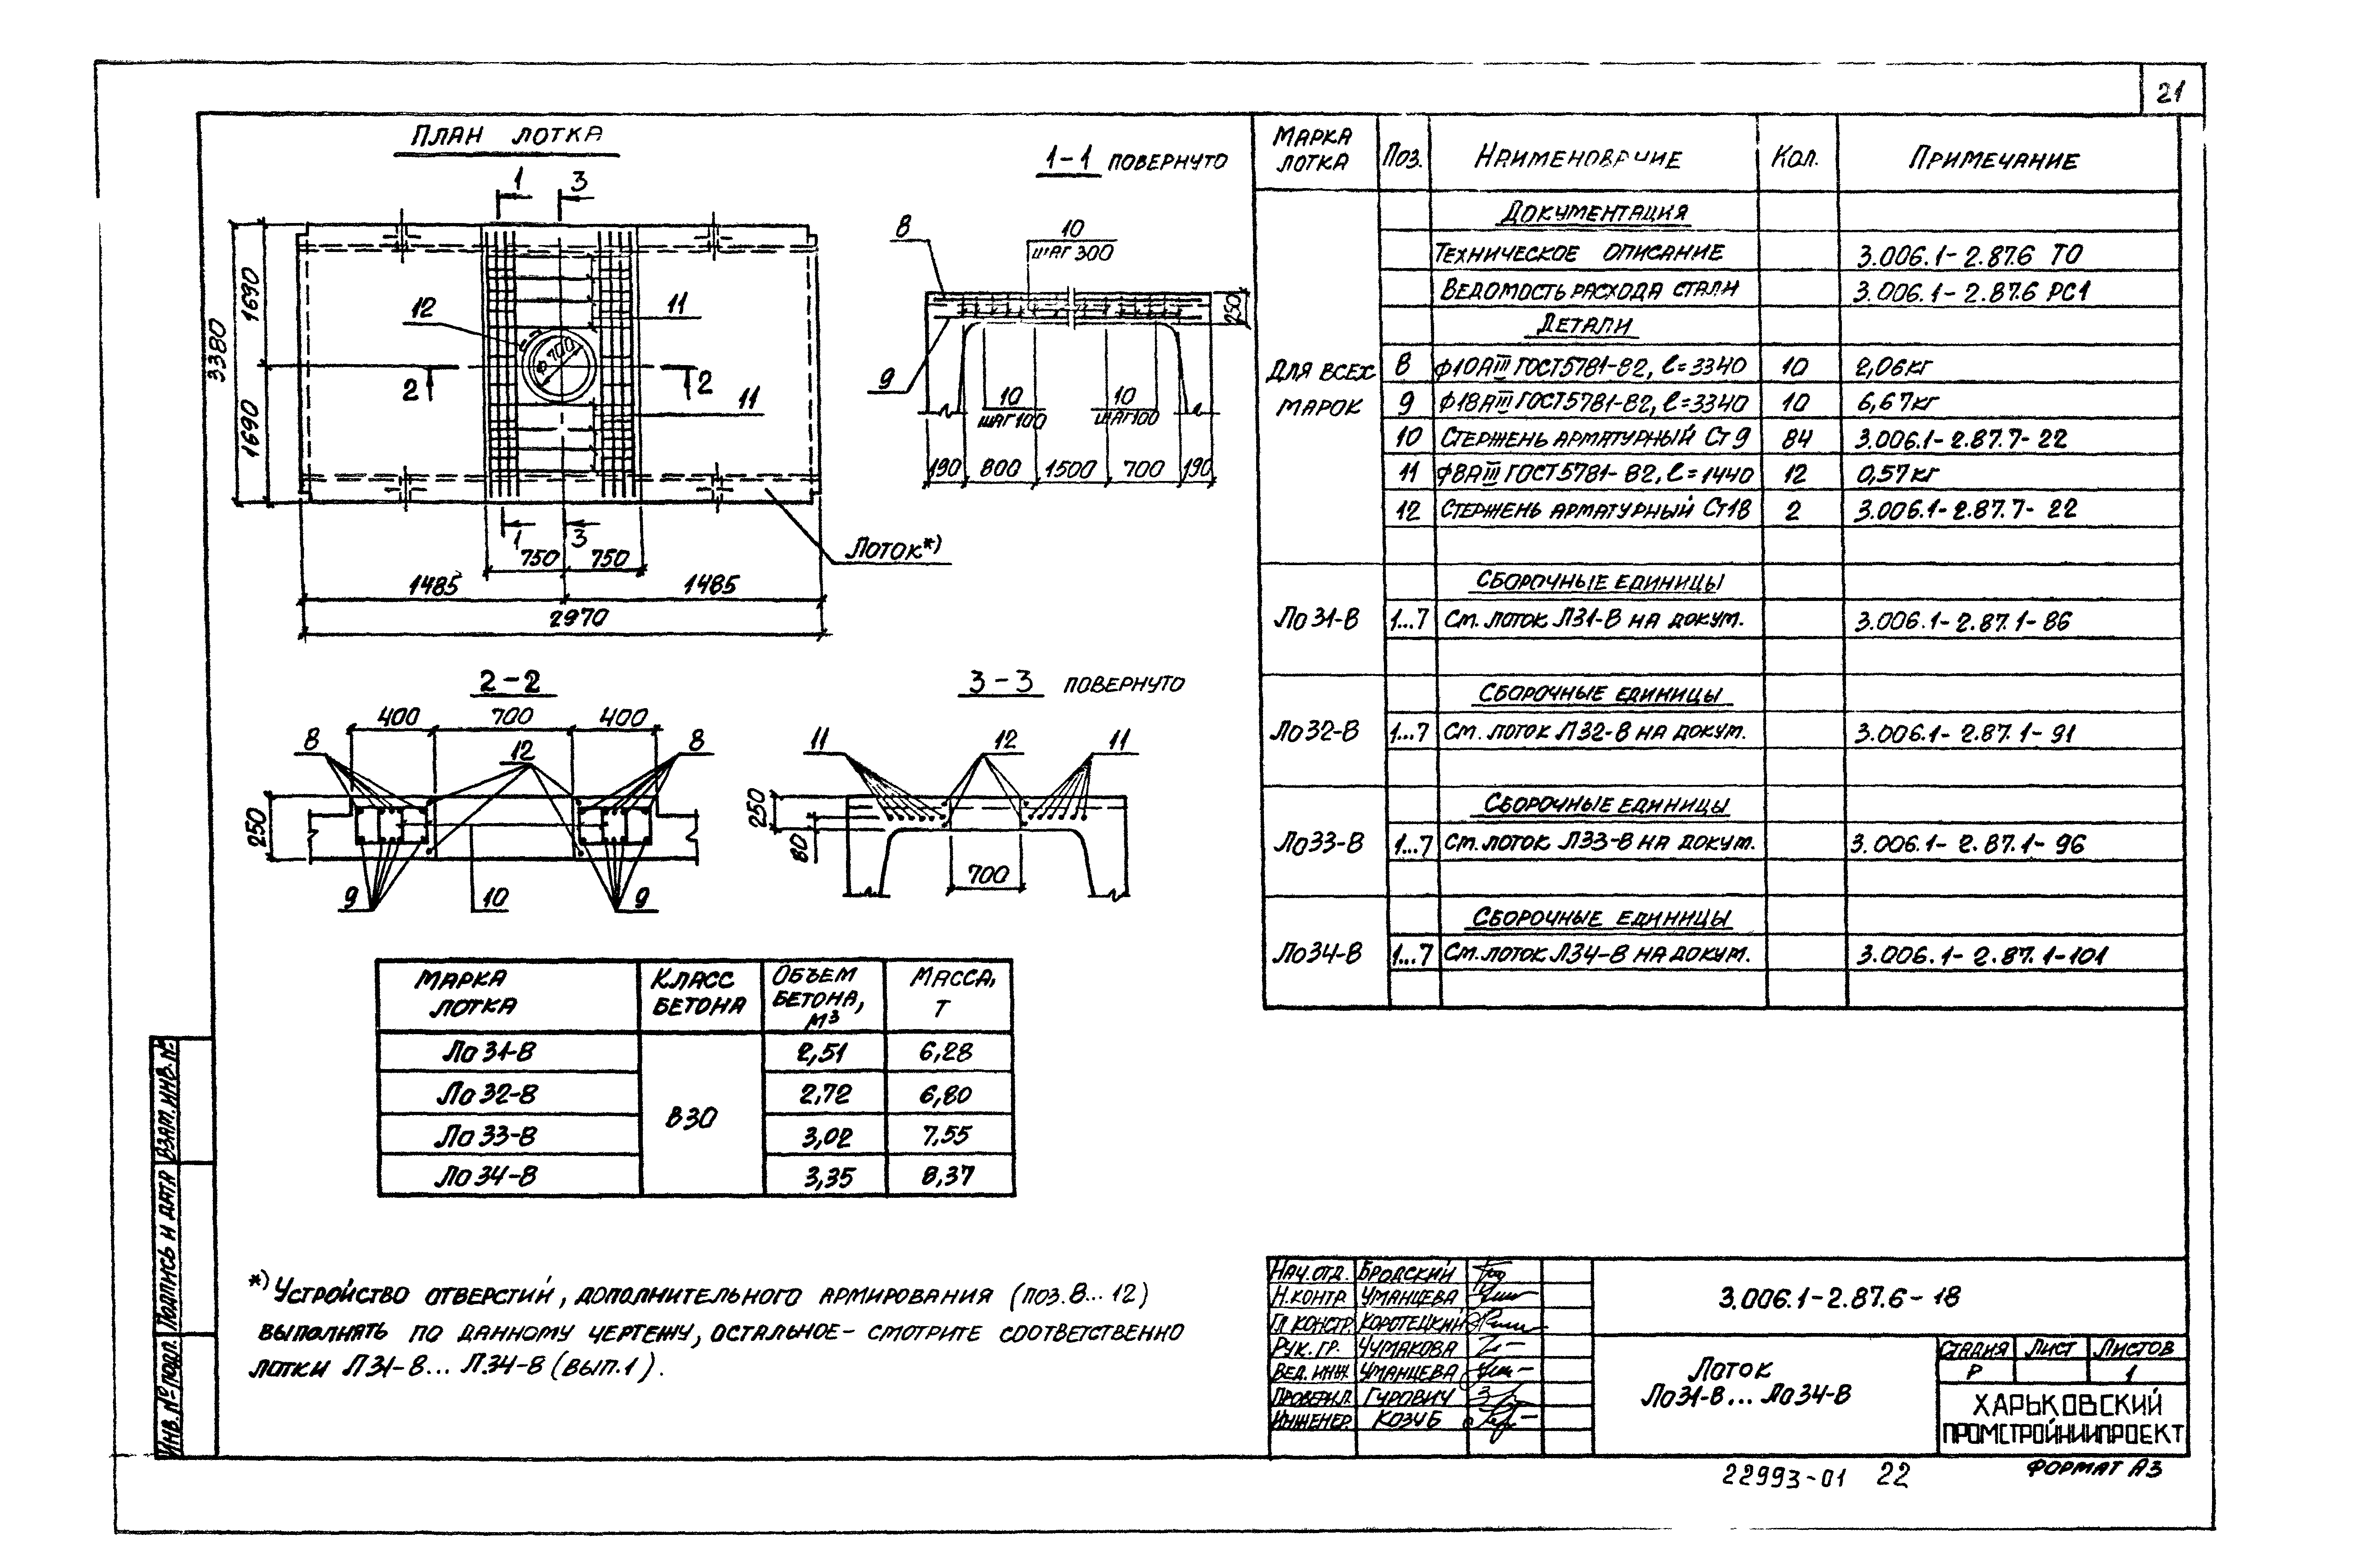 21
План лотка
1-1 повернуто
1 3
3380
1690
1690
12
11
ф700
2 2
11
1 3
750 750
Лоток*)
1485 1485
2970
8
10
шаг 300
250
9
10
шаг 100
10
шаг 100
190 800 1500 700 190
2-2
400 700 400
8 12 8
250
9 10 9
3-3 повернуто
11 12 11
250
80
700
Марка лотка Поз. Наименование Кол. Примечание
Документация
Техническое описание 3.006.1-2.87.6 ТО
Ведомость расхода стали 3.006.1-2.87.6 РС1
Детали
Для всех марок
8 ф10АIII ГОСТ5781-82, ℓ=3340 10 2,06кг
9 ф18АIII ГОСТ5781-82, ℓ=3340 10 6,67кг
10 Стержень арматурный Ст9 84 3.006.1-2.87.7-22
11 ф8АIII ГОСТ5781-82, ℓ=1440 12 0,57кг
12 Стержень арматурный Ст18 2 3.006.1-2.87.7-22
Сборочные единицы
Ло31-8 1...7 См. лоток Л31-8 на докум. 3.006.1-2.87.1-86
Сборочные единицы
Ло32-8 1...7 См. лоток Л32-8 на докум. 3.006.1-2.87.1-91
Сборочные единицы
Ло33-8 1...7 См. лоток Л33-8 на докум. 3.006.1-2.87.1-96
Сборочные единицы
Ло34-8 1...7 См. лоток Л34-8 на докум. 3.006.1-2.87.1-101
Марка лотка Класс бетона Объем бетона, м³ Масса, т
Ло31-8 2,51 6,28
Ло32-8 2,72 6,80
В30
Ло33-8 3,02 7,55
Ло34-8 3,35 8,37
*) Устройство отверстий, дополнительного армирования (поз.8...12)
выполнять по данному чертежу, остальное - смотрите соответственно
лотки Л31-8...Л34-8 (вып.1).
Взам. инв. №
Подпись и дата
Инв. № подл.
Нач.отд. Бродский
Н.контр Уманцева
Гл.констр. Коротецкий
Рук.гр. Чумакова
Вед.инж. Уманцева
Проверил. Гурович
Инженер. Козуб
3.006.1-2.87.6-18
Лоток
Ло31-8...Ло34-8
Стадия Лист Листов
Р 1
Харьковский
Промстройниипроект
22993-01 22
Формат А3